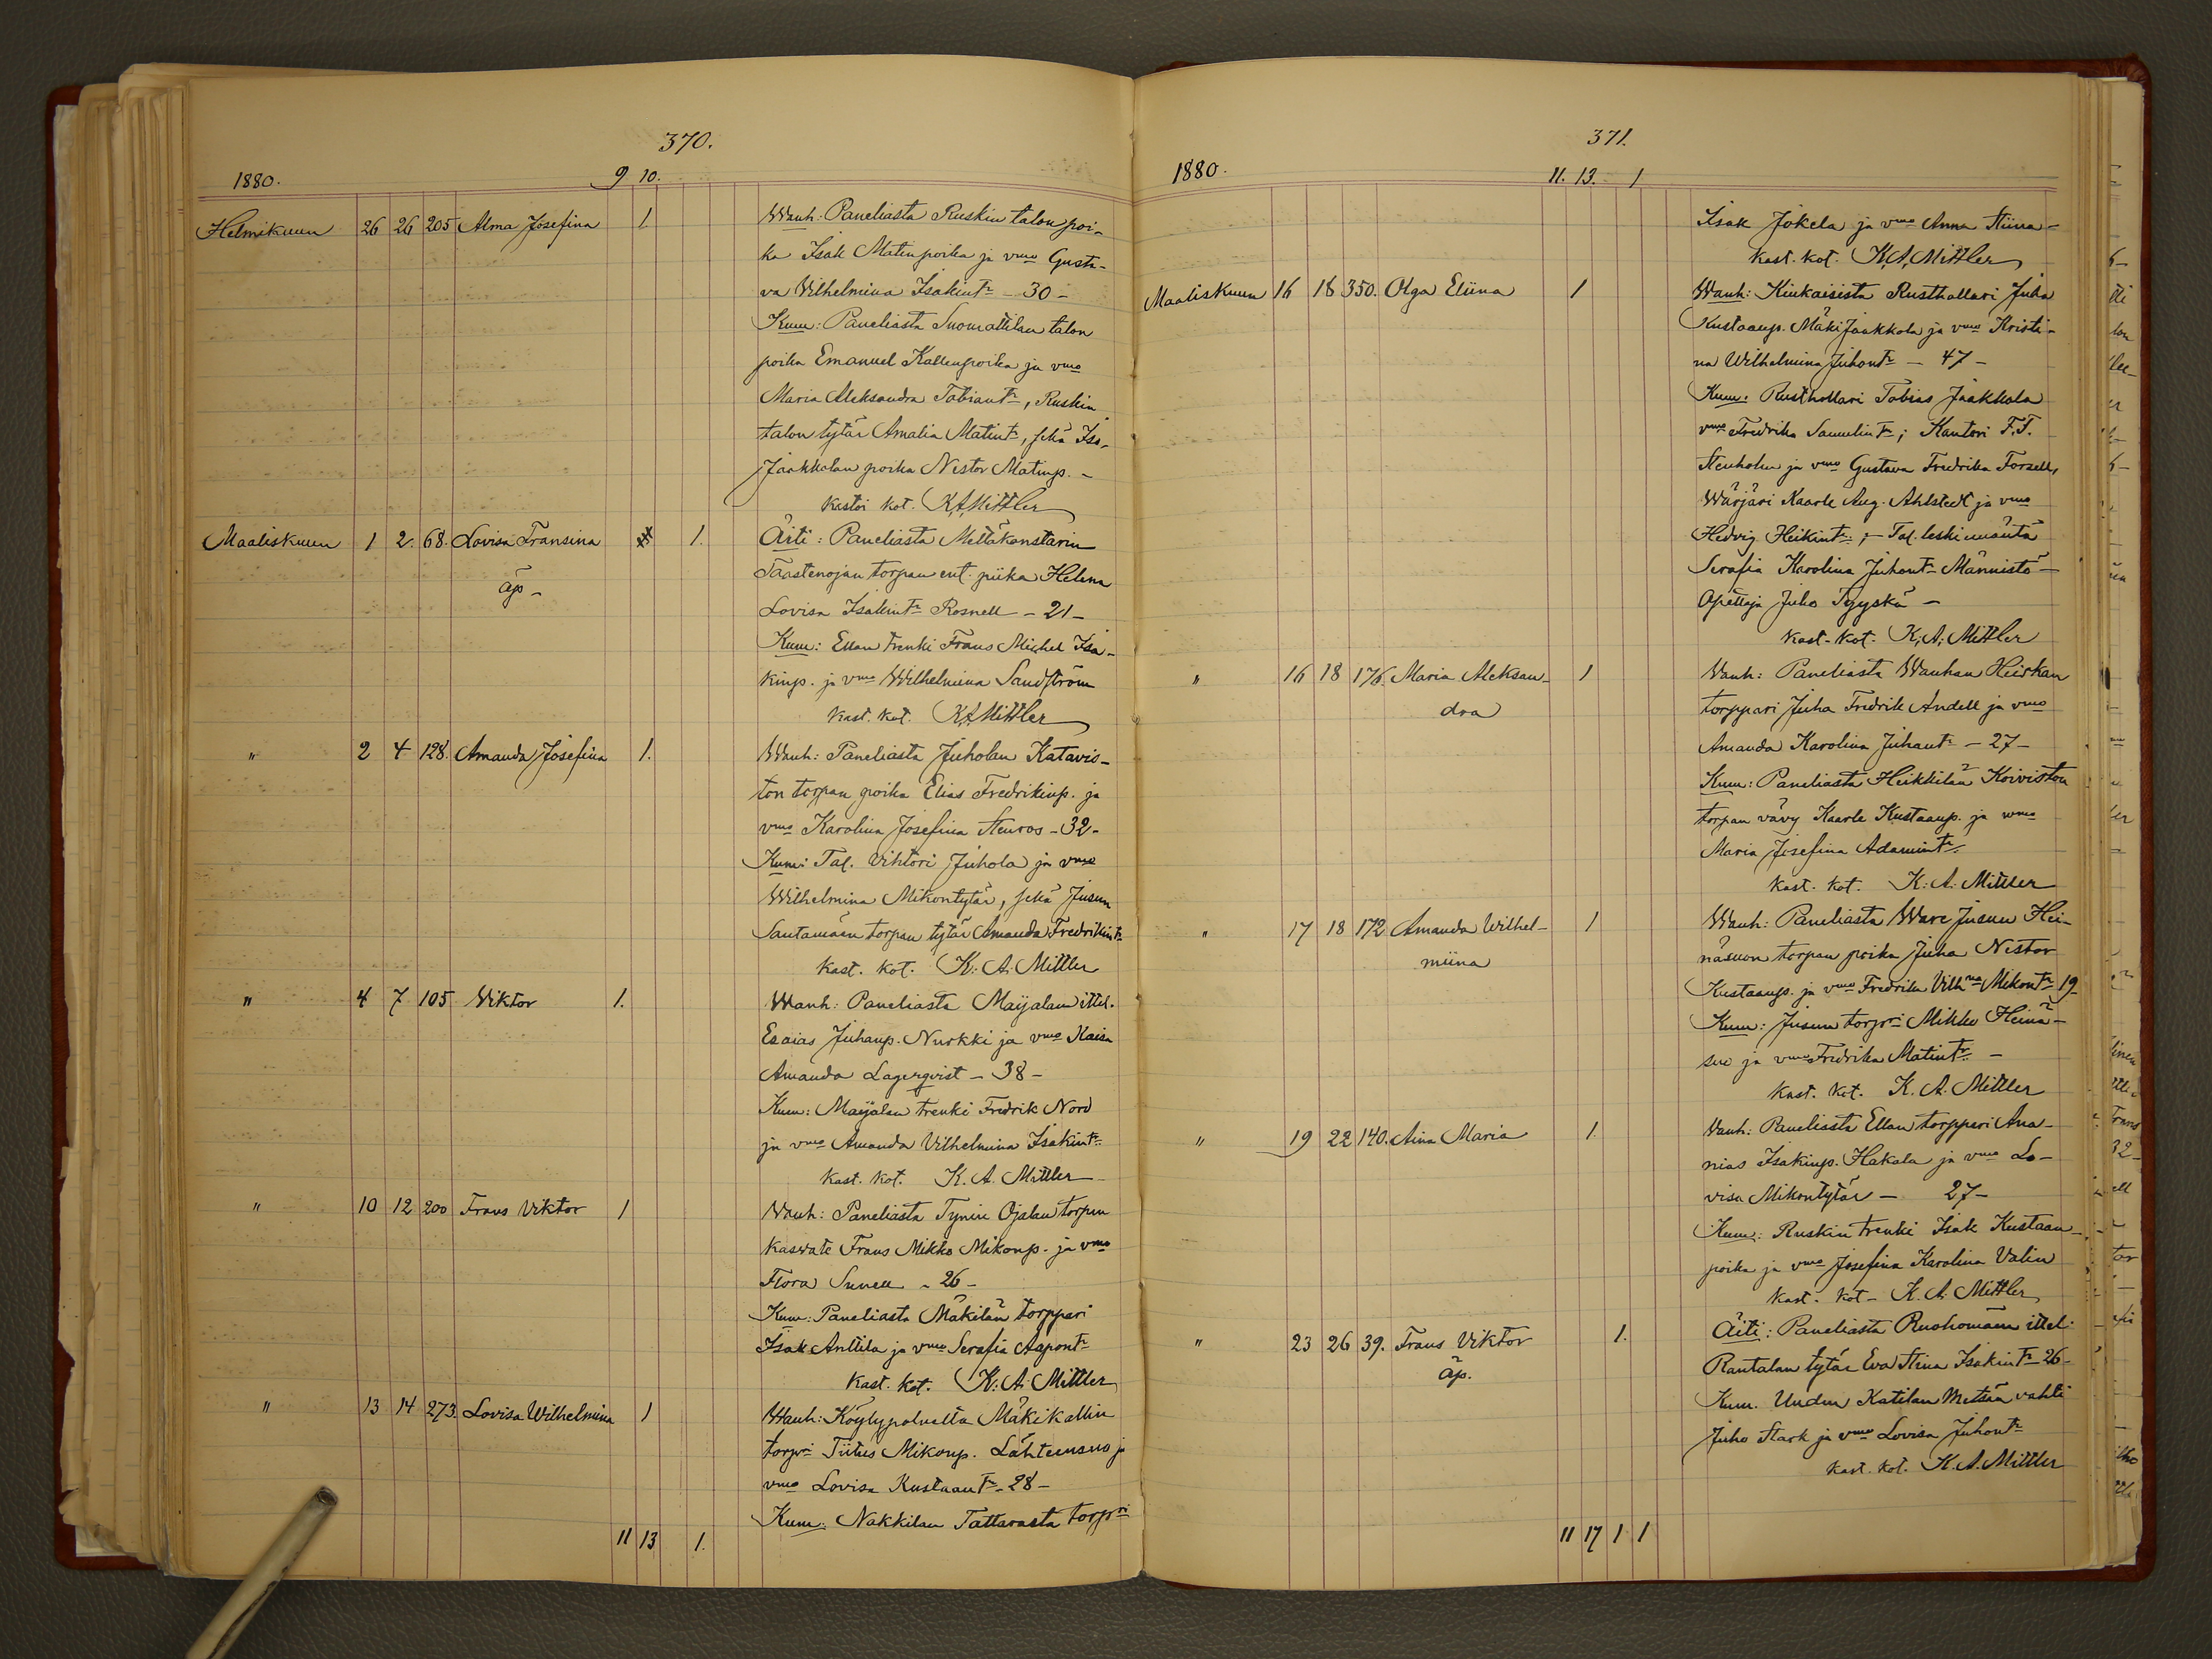 370.
1880. 9 10.
Helmikuun 26 26 205 Alma Josefina 1. Wanh: Paneliasta Ruskin talon poi-
ka Isak Matinpoika ja vmo Gusta-
va Vilhelmina Isakintr - 30 -
Kum: Paneliasta Suomattilan talon
poika Emanuel Kallenpoika ja vmo
Maria Aleksandra Tobiantr, Ruskin
talon tytär Amalia Matintr, sekä Iso-
Jaakkolan poika Nestor Matinp. -
kastoi kot. K.A.Mittler
Maaliskuun 1 2. 68. Lovisa Fransina 1. Äiti: Paneliasta Mettäkonstarin
äp - Taastenojan torpan ent. piika Helena
Lovisa Isakintr Rosnell - 21 -
Kum: Ellan trenki Frans Michel Isa-
kinp. ja vmo Wilhelmina Sandström
kast. kot. K.A.Mittler
" 2 4 128. Amanda Josefina 1. Wanh: Paneliasta Juholan Katavis-
ton torpan poika Elias Fredrikinp. ja
vmo Karolina Josefina Stenros - 32 -
Kum: Tal. Vihtori Juhola ja vmo
Wilhelmina Mikontytär, sekä Jusun
Santamäen torpan tytär Amanda Fredrikintr
kast. kot. K: A. Mittler
" 4 7 105 Viktor 1. Wanh: Paneliasta Maijalan ittel.
Esaias Juhanp. Nurkki ja vmo Kaisa
Amanda Lagerqvist - 38 -
Kum: Maijalan trenki Fredrik Nord
ja vmo Amanda Vilhelmina Isakintr
kast. kot. K. A. Mittler
" 10 12 200 Frans Viktor 1 Wanh: Paneliasta Tynin Ojalan torpan
kasvate Frans Mikko Mikonp. ja vmo
Flora Snnell - 26 -
Kum: Paneliasta Mäkilän torppari
Isak Anttila ja vmo Serafia Aapontr
kast. kot. K: A. Mittler
" 13 14 273. Lovisa Wilhelmina 1 Wanh: Köylypolvelta Mäkikallin
torpri Tiitus Mikonp. Lähteensuo ja
vmo Lovisa Kustaantr - 28 -
Kum: Nakkilan Tattarasta torpri
11 13 1.
371.
1880. 11. 13. 1
Isak Jokela ja vmo Anna Stiina -
kast. kot. K.A.Mittler
Maaliskuun 16 18 350. Olga Eliina 1 Wanh: Kiukaisista Rusthollari Juha
Kustaanp. MäkiJaakkola ja vmo Kristi-
na Wilhelmina Juhontr - 47 -
Kum: Rusthollari Tobias Jaakkola
vmo Fredrika Samulintr; Kantori F.F.
Stenholm ja vmo Gustava Fredrika Forsell,
Wärjäri Kaarle Aug. Ahlstedt ja vmo
Hedvig Heikintr; - Tal. leski emäntä
Serafia Karolina Juhontr Männistö -
Opettaja Juho Tyyskä -
kast. kot. K. A. Mittler
" 16 18 176. Maria Aleksan- 1 Vanh: Paneliasta Wanhan Heiskan
dra torppari Juha Fredrik Andell ja vmo
Amanda Karolina Juhantr - 27 -
Kum: Paneliasta Heikkilän Koiviston
torpan vävy Kaarle Kustaanp. ja vmo
Maria Josefina Adamintr.
kast. kot. K: A. Mittler
" 17 18 172 Amanda Wilhel- 1 Wanh: Paneliasta Ware Jusun Hei-
miina näsuon torpan poika Juha Nestor
Kustaanp. ja vmo Fredrika Vilhna Mikontr 19
Kum: Jusun torpri Mikko Heinä-
suo ja vmo Fredrika Matintr -
kast. kot. K. A. Mittler
" 19 22 140. Aina Maria 1. Vanh: Paneliasta Ellan torppari Ana-
nias Isakinp. Hakala ja vmo Lo-
visa Mikontytär - 27 -
Kum: Ruskin trenki Isak Kustaan-
poika ja vmo Josefina Karolina Valin
kast. kot - K. A. Mittler
" 23 26 39. Frans Viktor 1. Äiti: Paneliasta Ruohomäen ittel.
äp. Rantalan tytär Eva Stina Isakintr - 26 -
Kum. Uuden Katilan Metsän vahti
Juho Stark ja vmo Lovisa Juhontr
kast. kot. K. A. Mittler
11 17 1 1